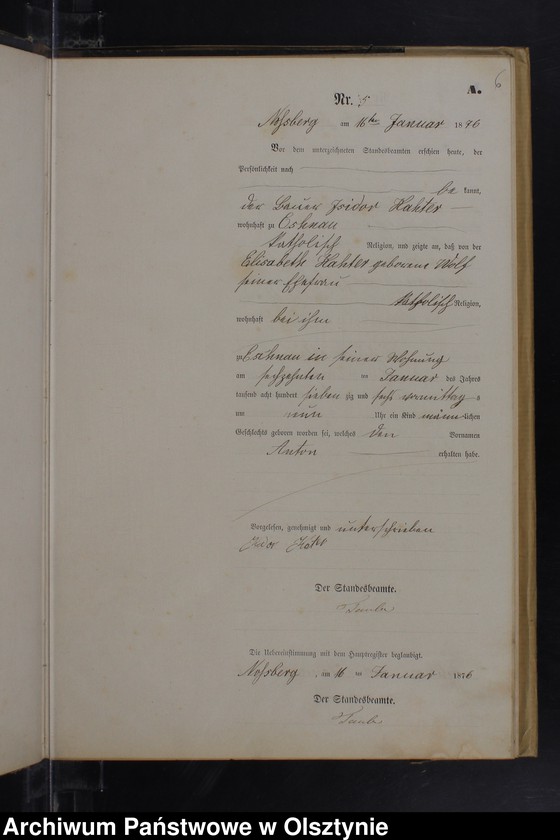 A.
6
Nr. 5
Noßberg am 16ten Januar 1876
Vor dem unterzeichneten Standesbeamten erschien heute, der
Persönlichkeit nach
be kannt,
der Bauer Isidor Hahter
wohnhaft zu Eschnau
katholisch Religion, und zeigte an, daß von der
Elisabeth Hahter geborene Wolf
seiner Ehefrau
katholisch Religion,
wohnhaft bei ihm
zu Eschnau in seiner Wohnung
am sechzehnten ten Januar des Jahres
tausend acht hundert sieben zig und sechs vormittag s
um neun Uhr ein Kind männ-lichen
Geschlechts geboren worden sei, welches den Vornamen
Anton erhalten habe.
Vorgelesen, genehmigt und unterschrieben
Isidor
Der Standesbeamte.
Die Uebereinstimmung mit dem Hauptregister beglaubigt.
Noßberg, am 16 ten Januar 1876
Der Standesbeamte.
Archiwum Państwowe w Olsztynie